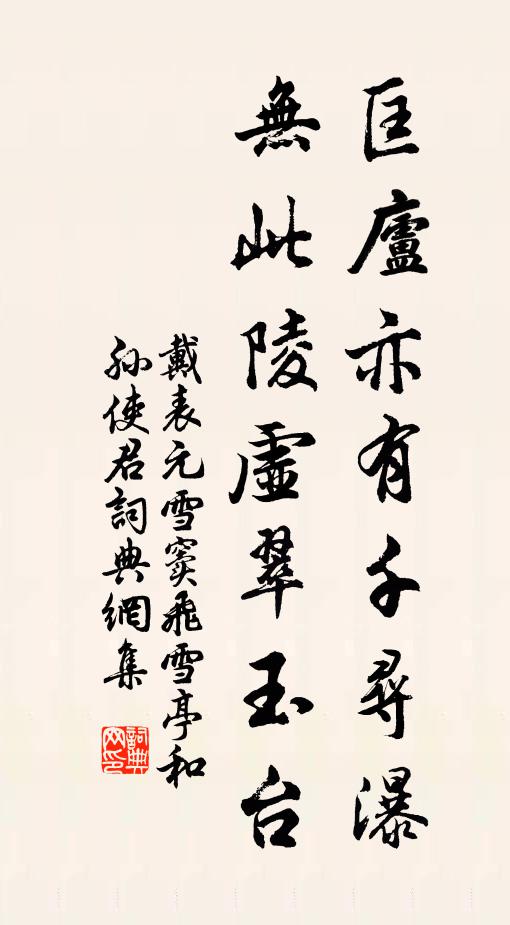 匡廬亦有千尋瀑
無此陵虛翠玉台
戴表元雪竇飛雪亭和
孫使君詞典網集
詞典网印